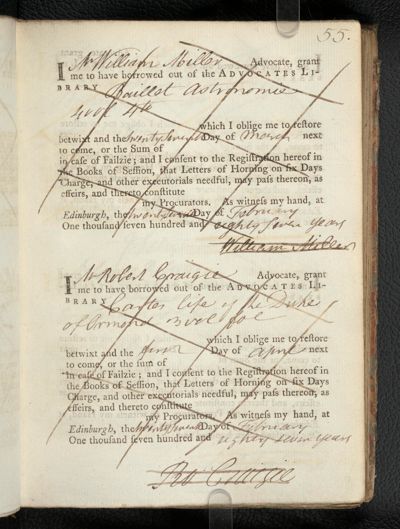 55.
I Mr William Miller Advocate, grant
me to have borrowed out of the ADVOCATES LI-
BRARY Baillet Astronomie
4 vol 4to
which I oblige me to restore
betwixt and the twenty seventh Day of March next
to come, or the Sum of
in case of Failzie; and I consent to the Registration hereof in
the Books of Session, that Letters of Horning on six Days
Charge, and other executorials needful, may pass thereon, as
effeirs, and thereto constitute
my Procurators. As witness my hand, at
Edinburgh, the twenty seventh Day of February
One thousand seven hundred and eighty seven years
William Miller
I Mr Robert Craigie Advocate, grant
me to have borrowed out of the ADVOCATES LI-
BRARY Cartes life of the Duke
of Ormond 3 vol fol
which I oblige me to restore
betwixt and the Day of April next
to come, or the sum of
in case of Failzie; and I consent to the Registration hereof in
the Books of Session, that Letters of Horning on six Days
Charge, and other executorials needful, may pass thereon, as
effeirs, and thereto constitute
my Procurators. As witness my hand, at
Edinburgh, the twenty seventh Day of February
One thousand seven hundred and eighty seven years
Rot Craigie